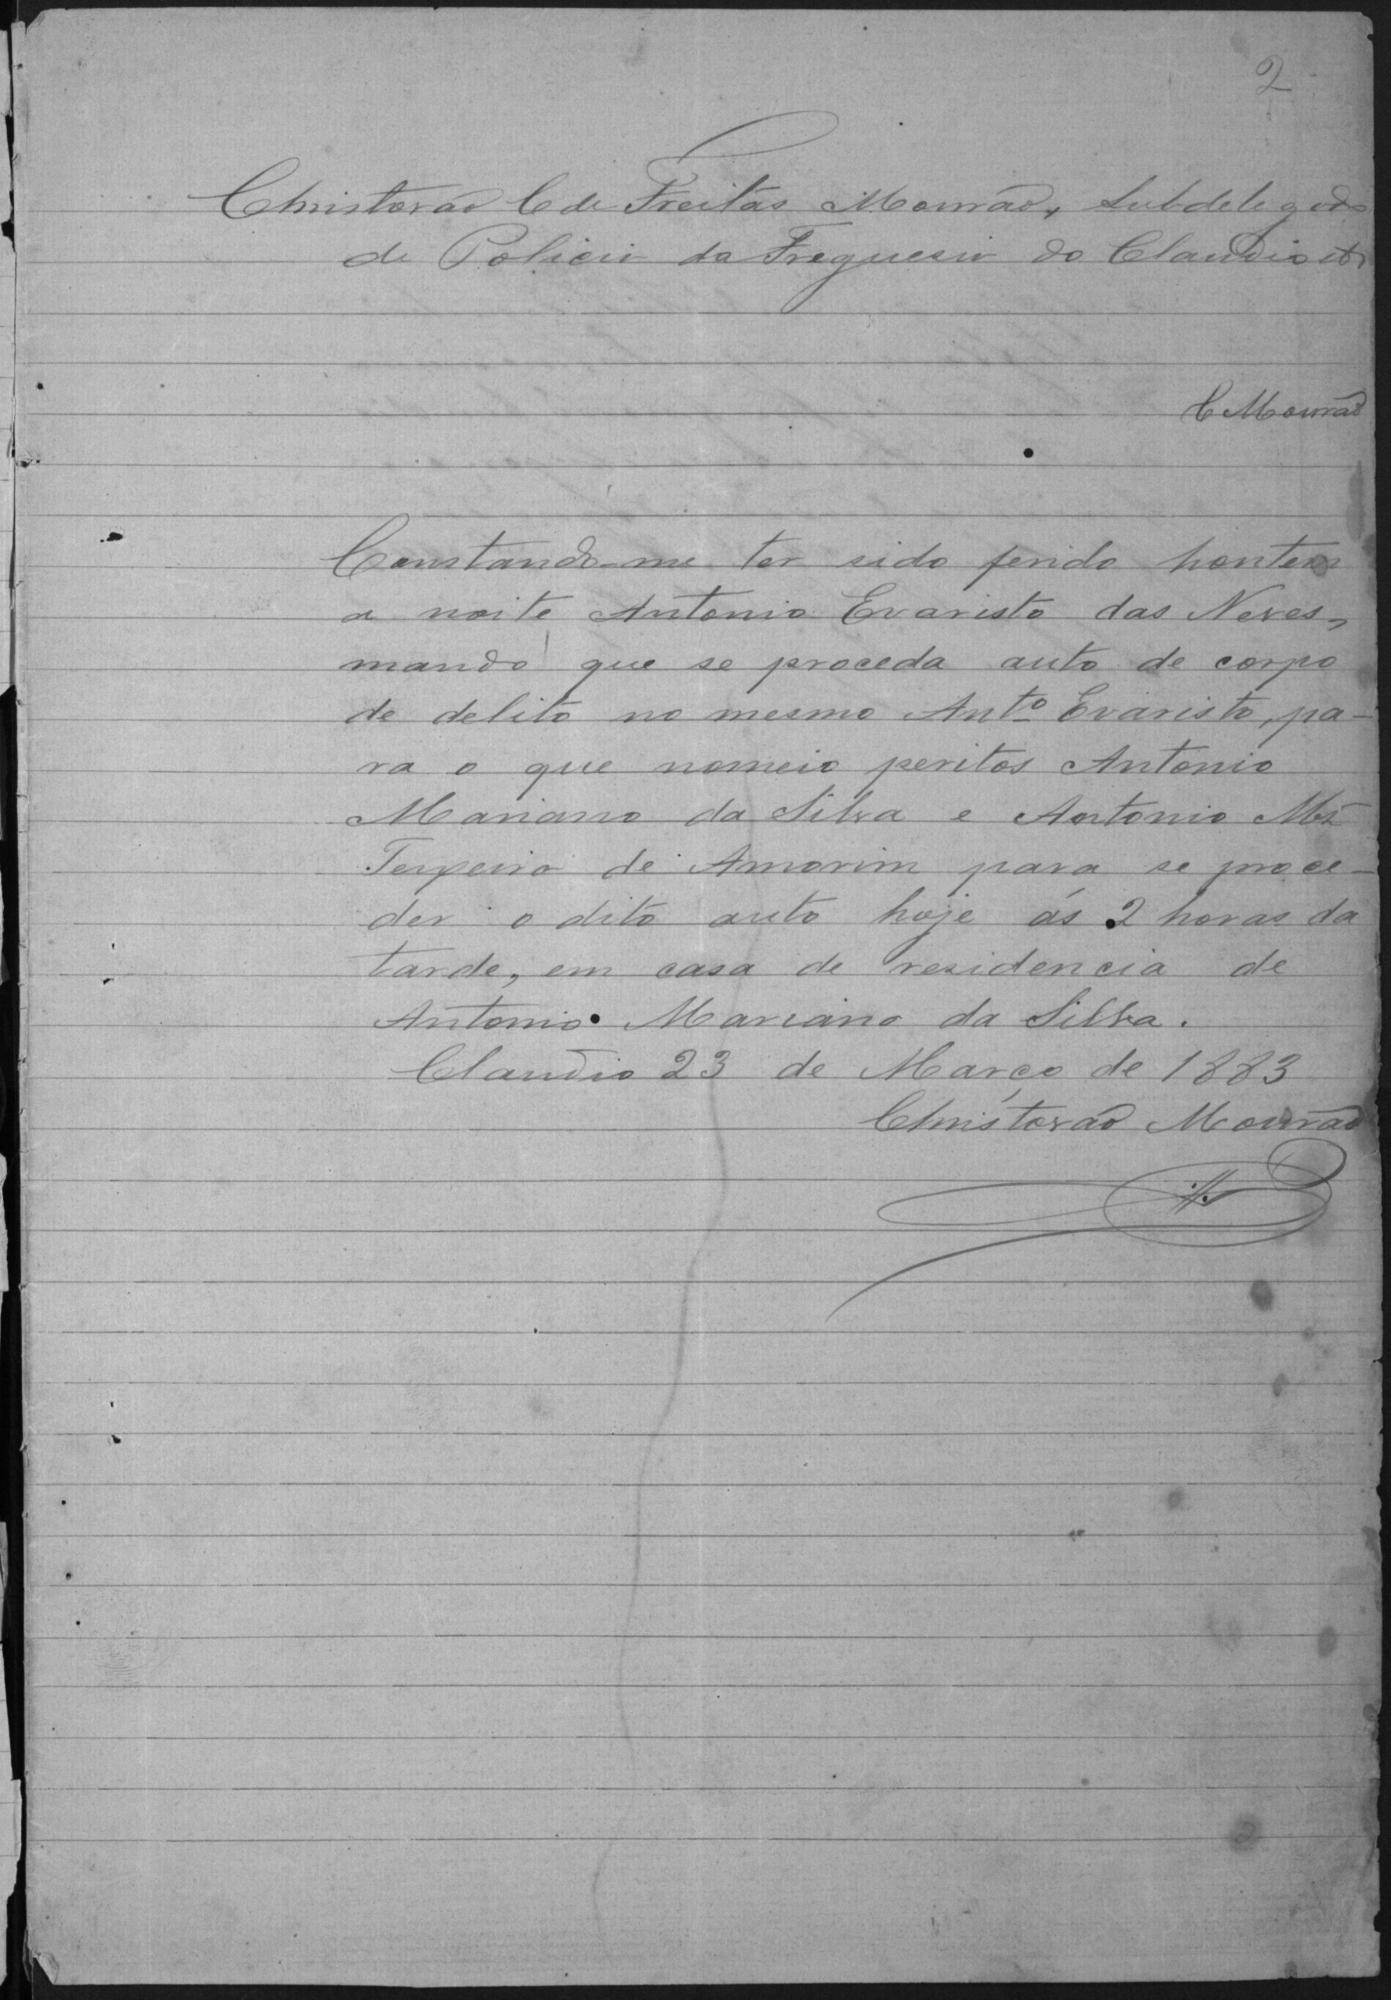 2
Christovão C de Freitas Mourão, Subdelegado
de Policia da Freguesia do Claudio
C Mourão
Constando-me ter sido ferido hontem
a noite Antonio Evaristo das Neves,
mando que se proceda auto de corpo
de delito no mesmo Antº Evaristo, pa-
ra o que nomeio peritos Antonio
Mariano da Silva e Antonio
Teixeira de Amorim para se proce-
der o dito auto hoje ás 2 horas da
tarde, em casa de residencia de
Antonio Mariano da Silva.
Claudio 23 de Março de 1883
Christovão Mourão